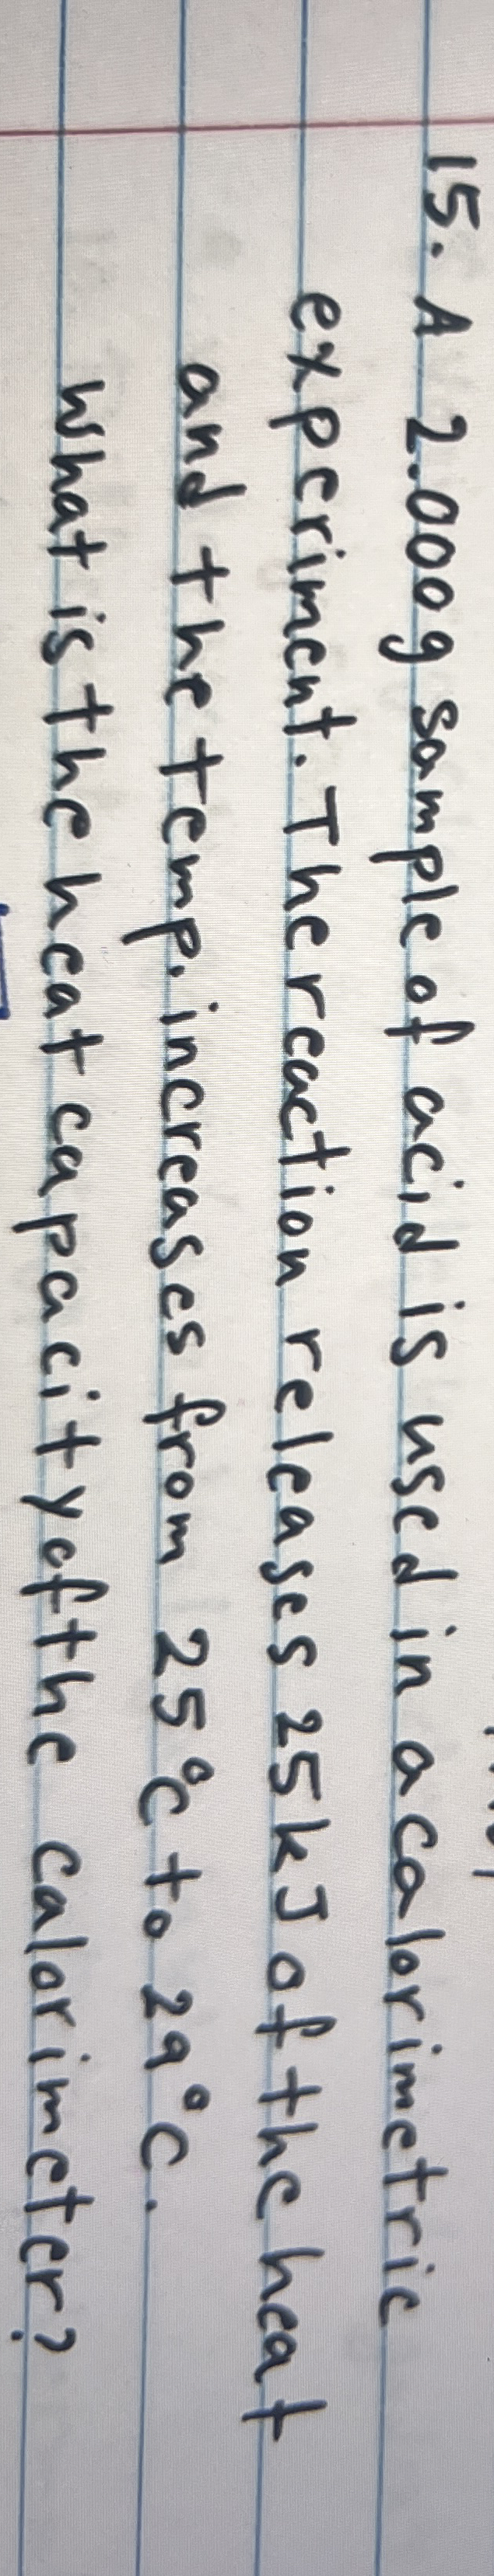 15. A 2.000g sample of acid is used in a calorimetric
experiment. The reaction releases 25kJ of the heat
and the temp. increases from 25°C to 29°C.
What is the heat capacity of the calorimeter?